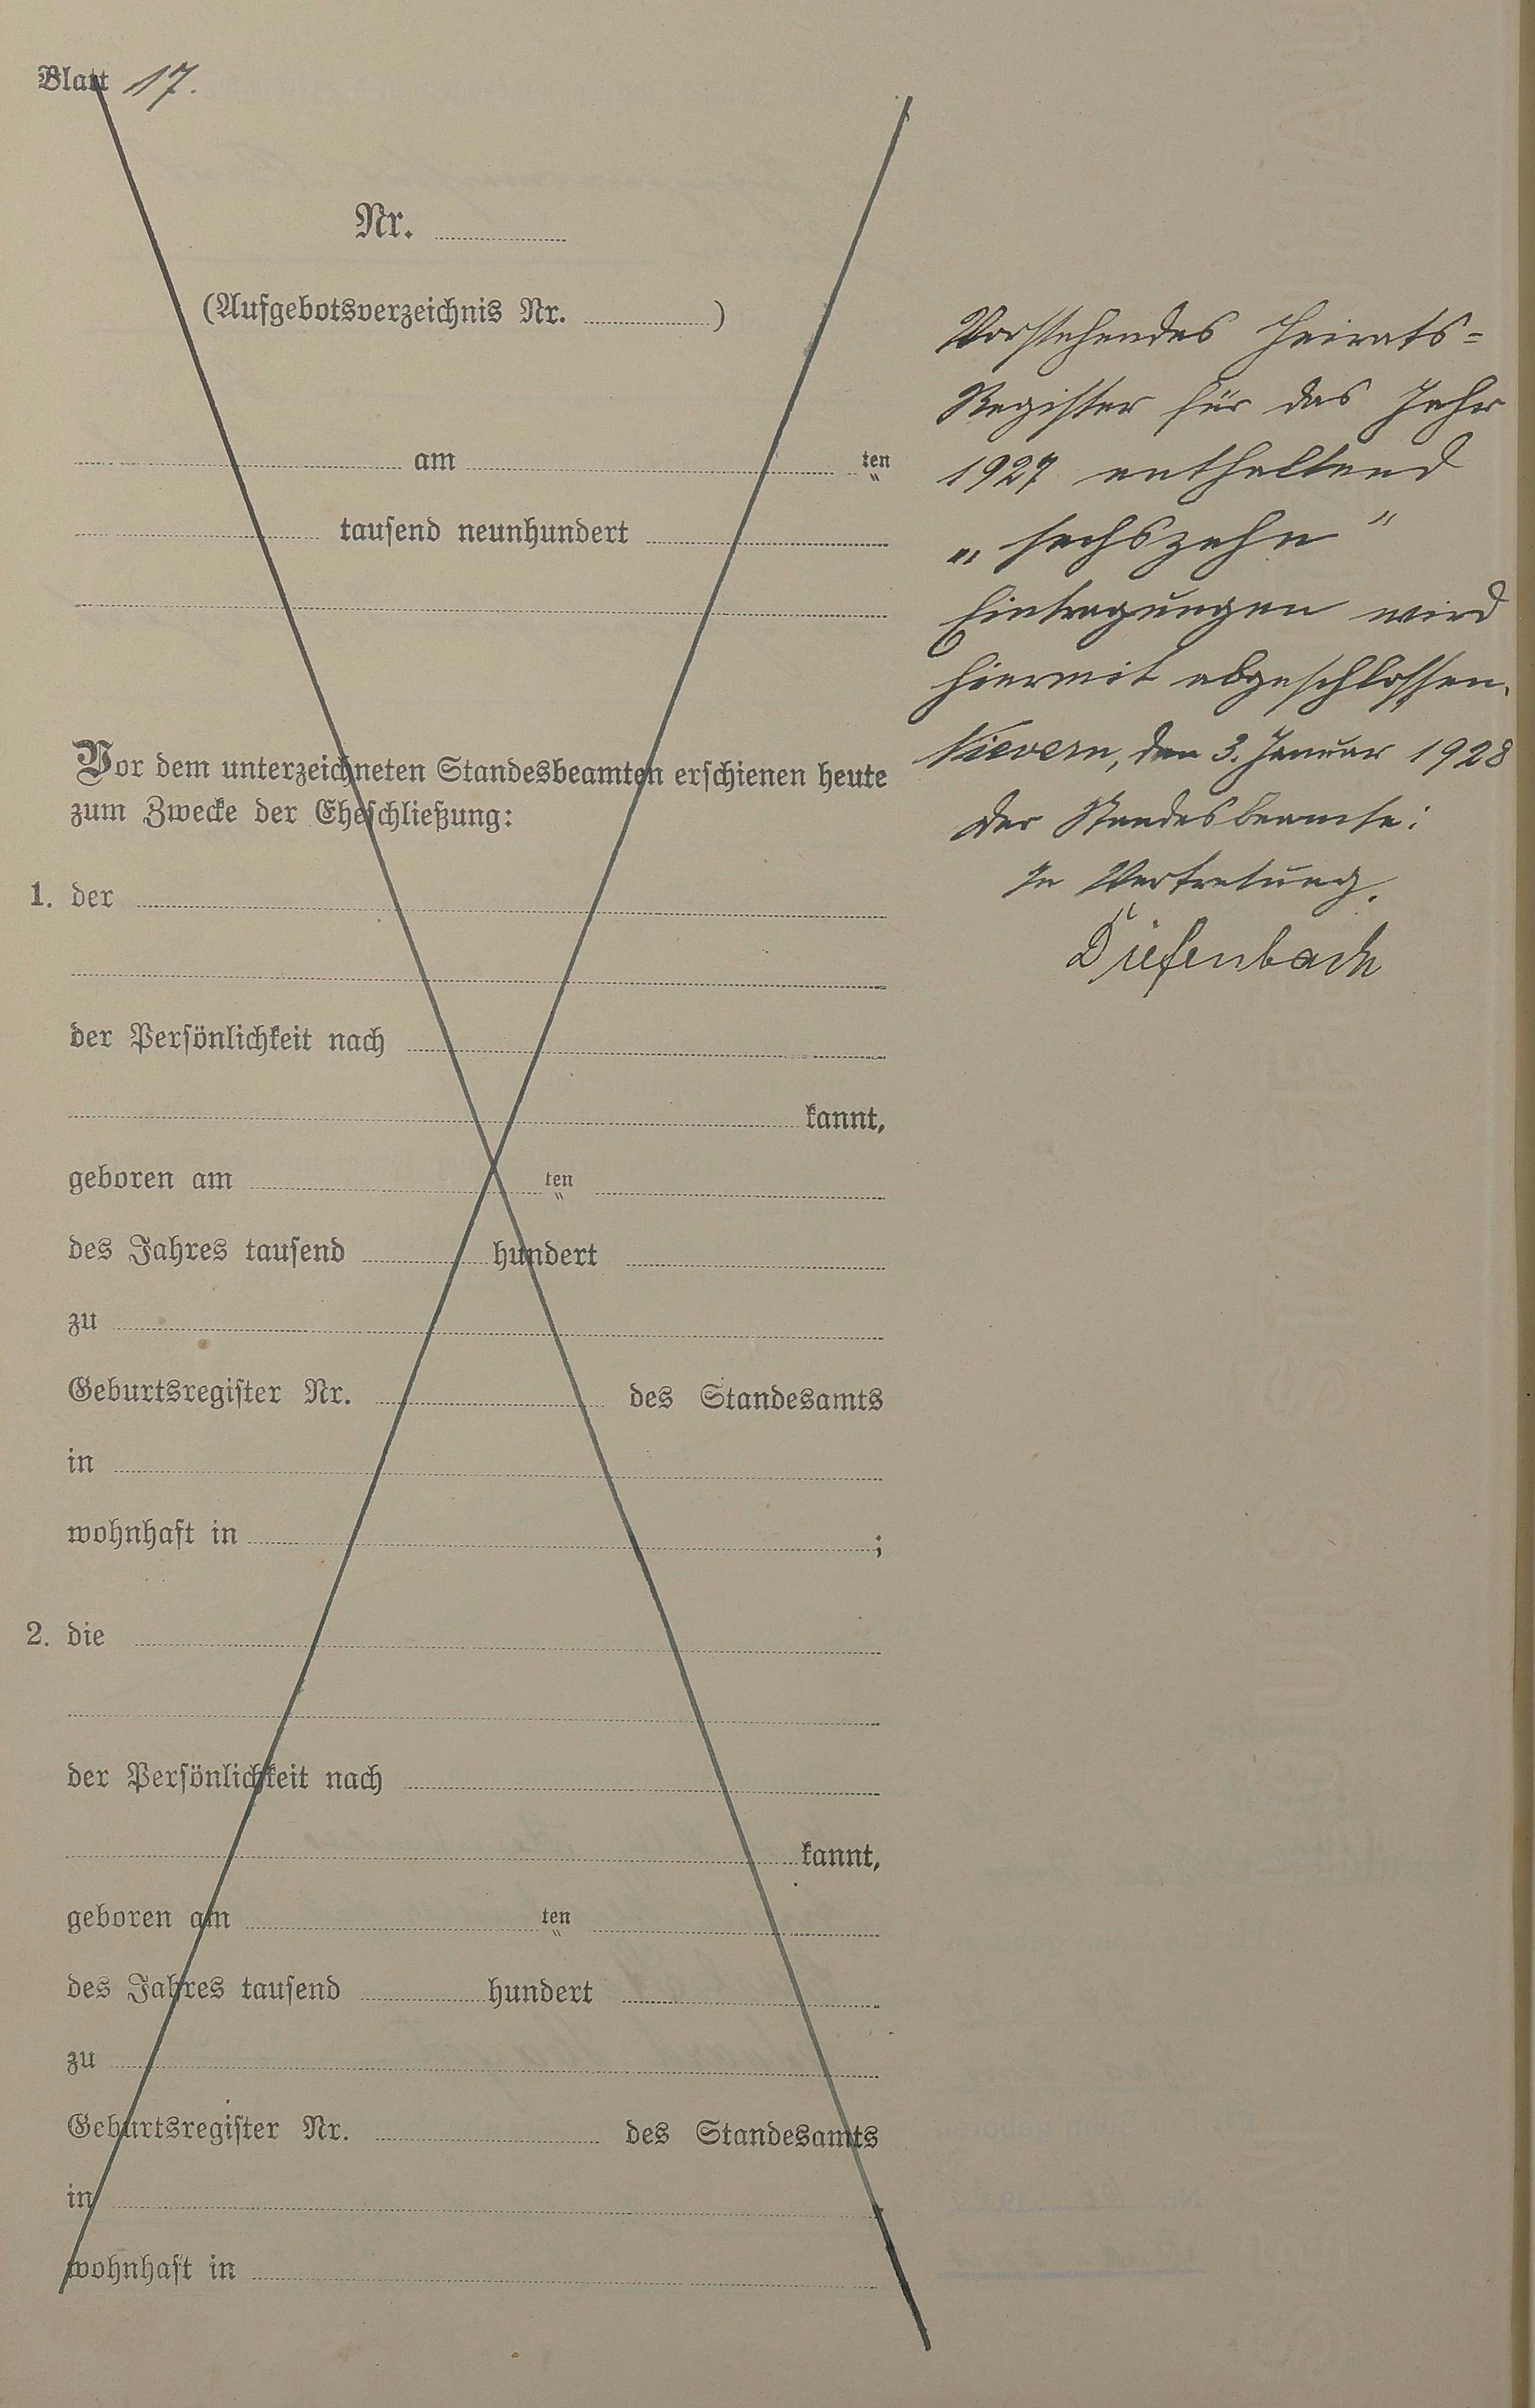 Blatt 17.
Nr.
(Aufgebotsverzeichnis Nr. )
am ten
"
tausend neunhundert
Vor dem unterzeichneten Standesbeamten erschienen heute
zum Zwecke der Eheschließung:
1. der
der Persönlichkeit nach
kannt,
geboren am ten
"
des Jahres tausend hundert
zu
Geburtsregister Nr. des Standesamts
in
wohnhaft in ;
2. die
der Persönlichkeit nach
kannt,
geboren am ten
"
des Jahres tausend hundert
zu
Geburtsregister Nr. des Standesamts
in
wohnhaft in
Vorstehendes Heirats=
Register für das Jahr
1927 enthaltend
„sechszehn"
Eintragungen wird
hiermit abgeschlossen.
Nievern, den 3. Januar 1928
Der Standesbeamte:
In Vertretung.
Diefenbach